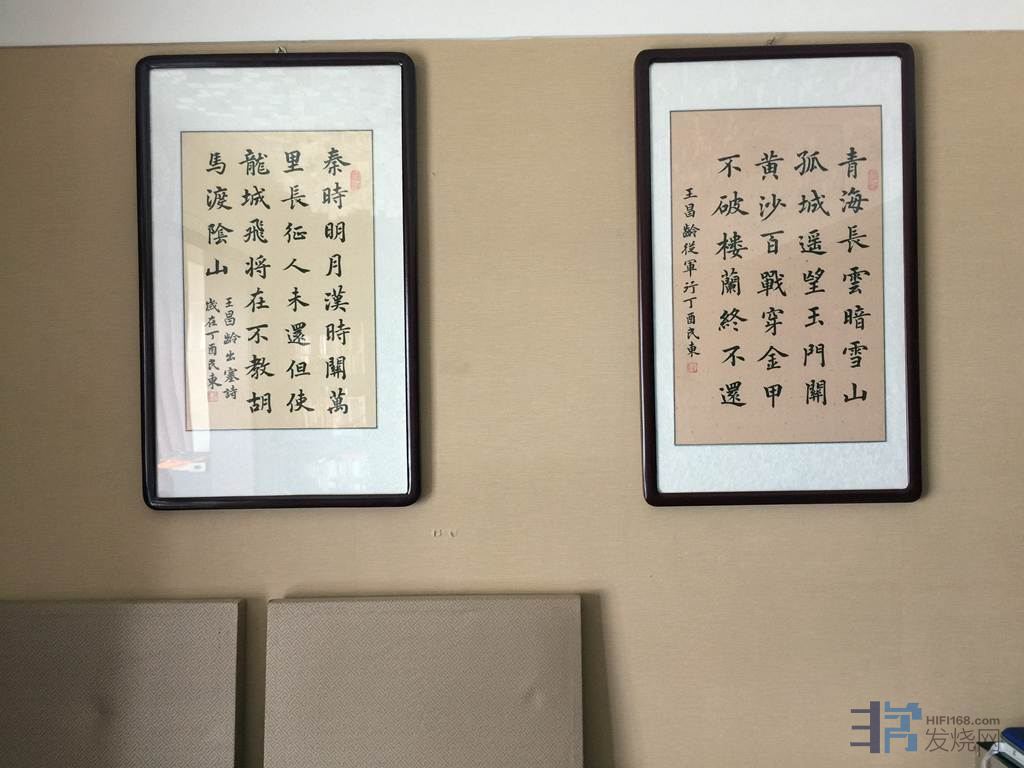 秦時明月漢時關萬
里長征人未還但使
龍城飛将在不教胡
馬渡陰山
王昌齡出塞詩
歲在丁酉民東
青海長雲暗雪山
孤城遥望玉門關
黄沙百戰穿金甲
不破樓蘭終不還
王昌齡從軍行丁酉民東
HIFI168.com
发烧网